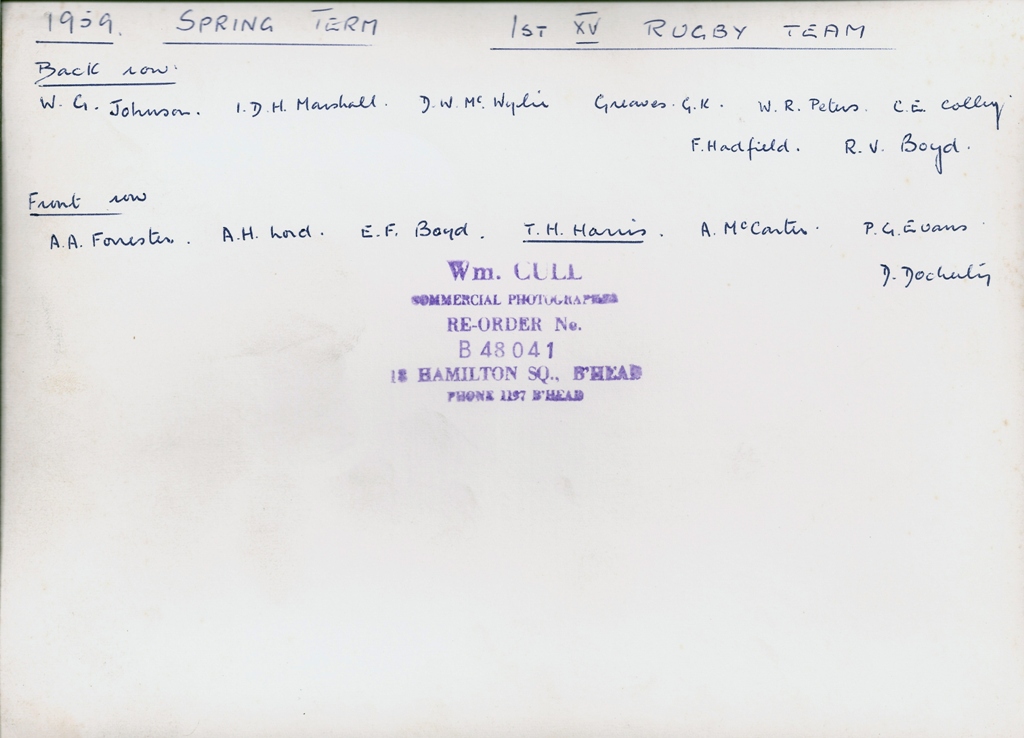 1959. SPRING TERM 1ST XV RUGBY TEAM
Back row.
W. G. Johnson. I.D.H. Marshall. D.W. Mc. Wylie Greaves. G.K. W.R. Peters. C.E. Colley
F. Hadfield. R.V. Boyd.
Front row
A.A. Forrester. A.H. Lord. E.F. Boyd. T.H. Harris. A. McCarter. P.G. Evans
D. Docherty
Wm. CULL
COMMERCIAL PHOTOGRAPHER
RE-ORDER No.
B 48041
18 HAMILTON SQ., B'HEAD
PHONE 1197 B'HEAD